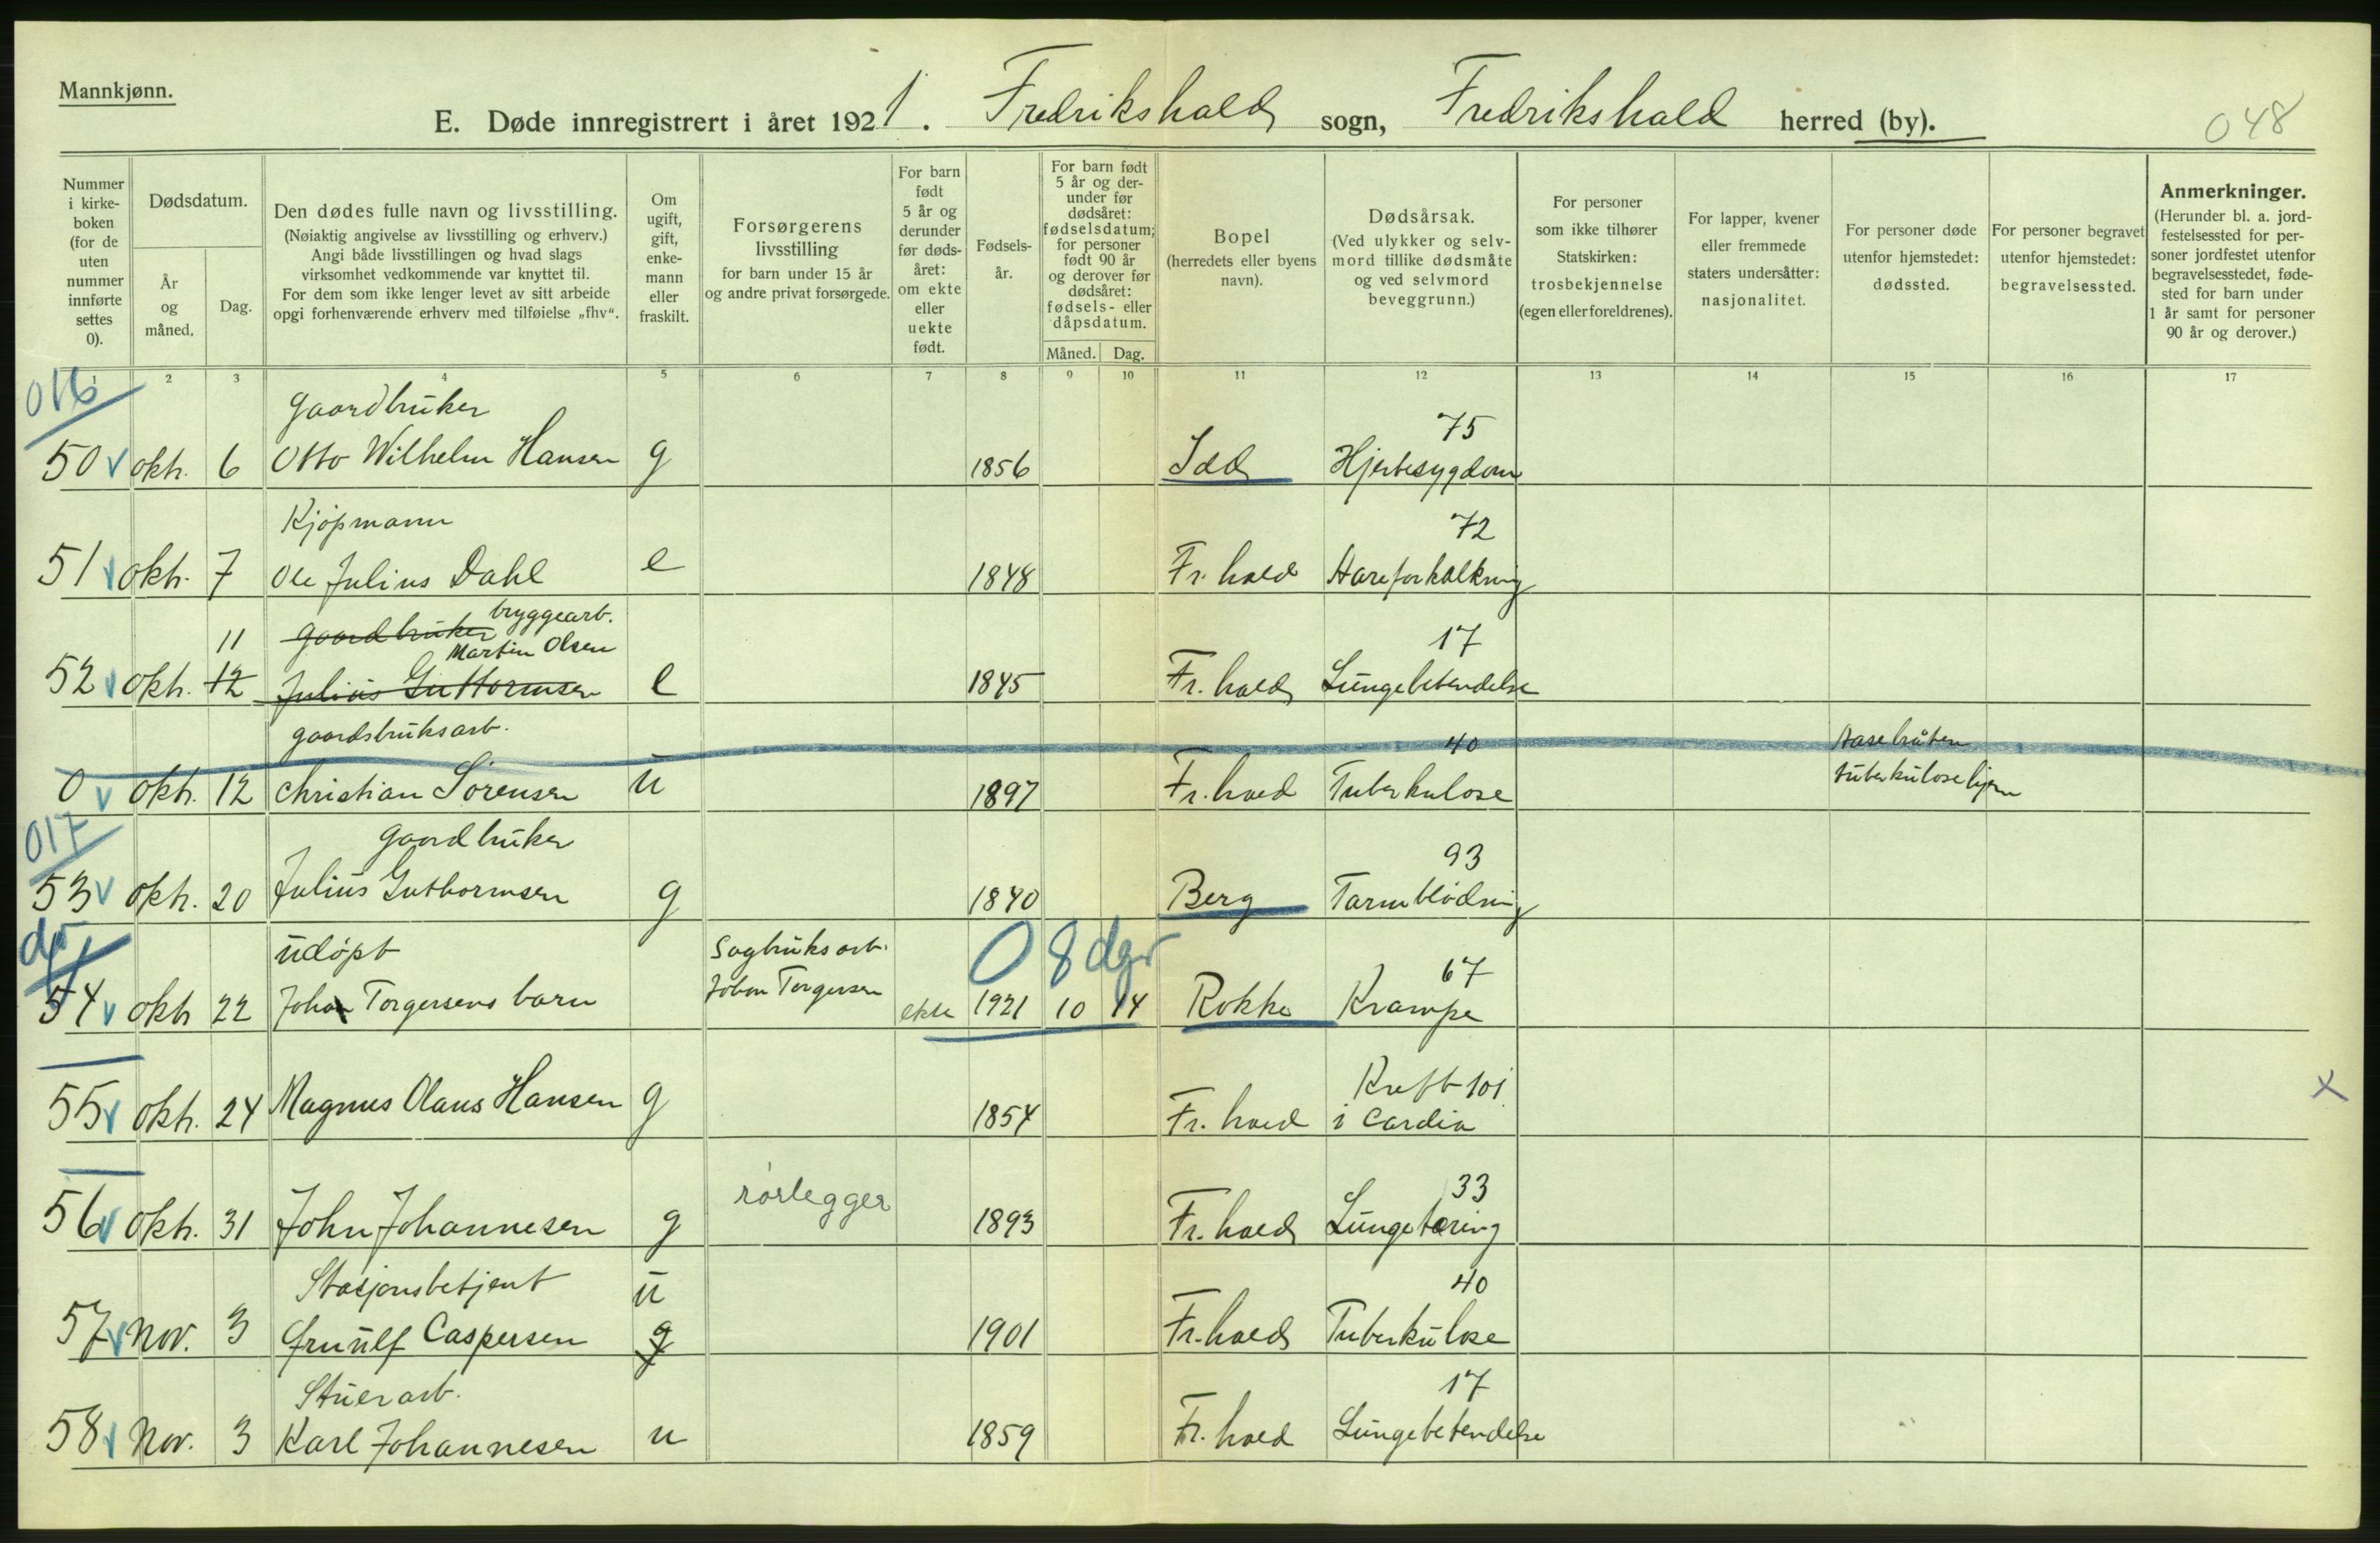 Mannkjønn.
E. Døde innregistrert i året 1921. Fredrikshald sogn, Fredrikshald herred (by).
048
Nummer i kirkeboken (for de uten nummer innførte settes 0).
Dødsdatum.
År og måned.
Dag.
Den dødes fulle navn og livsstilling.
(Nøiaktig angivelse av livsstilling og erhverv.)
Angi både livsstillingen og hvad slags
virksomhet vedkommende var knyttet til.
For dem som ikke lenger levet av sitt arbeide
opgi forhenværende erhverv med tilføielse „fhv“.
Om ugift, gift, enkemann eller fraskilt.
Forsørgerens livsstilling
for barn under 15 år
og andre privat forsørgede.
For barn født 5 år og derunder før dødsåret: om ekte eller uekte født.
Fødselsår.
For barn født 5 år og derunder før dødsåret: fødselsdatum; for personer født 90 år og derover før dødsåret: fødsels- eller dåpsdatum.
Måned. Dag.
Bopel
(herredets eller byens navn).
Dødsårsak.
(Ved ulykker og selvmord tillike dødsmåte og ved selvmord beveggrunn.)
For personer som ikke tilhører Statskirken: trosbekjennelse (egen eller foreldrenes).
For lapper, kvener eller fremmede staters undersåtter: nasjonalitet.
For personer døde utenfor hjemstedet: dødssted.
For personer begravet utenfor hjemstedet: begravelsessted.
Anmerkninger.
(Herunder bl. a. jordfestelsessted for personer jordfestet utenfor begravelsesstedet, fødested for barn under 1 år samt for personer 90 år og derover.)
1 2 3 4 5 6 7 8 9 10 11 12 13 14 15 16 17
016
gaardbruker 75
50 v okt. 6 Otto Wilhelm Hansen g 1856 Idd Hjertesygdom
Kjøpmann 72
51 v okt. 7 Ole Julius Dahl e 1848 Fr. hald Aareforkalkning
bryggearb.
11 gaardbruker 17
Martin Olsen
52 v okt. 12 Julius Guttormsen e 1845 Fr. hald Lungebetendelse
gaardsbruksarb. 40 Aasebråten
0 v okt. 12 Christian Sørensen u 1897 Fr. hald Tuberkulose tuberkulosehjem
017
gaardbruker 93
53 v okt. 20 Julius Guthormsen g 1840 Berg Tarmblødning
udøpt Sagbruksarb. 0 8 dgr 67
54 v okt 22 Johan Torgersens barn Johan Torgersen ekte 1921 10 14 Rokke Krampe
Kreft 101
55 v okt. 24 Magnus Olaus Hansen g 1854 Fr. hald i Cardia x
rørlegger 33
56 v okt. 31 John Johannesen g 1893 Fr. hald Lungetæring
Stasjonsbetjent u 40
57 v Nov. 3 Caspersen g 1901 Fr. hald Tuberkulose
Stuerarb. 17
58 v Nov. 3 Karl Johannesen u 1859 Fr. hald Lungebetendelse